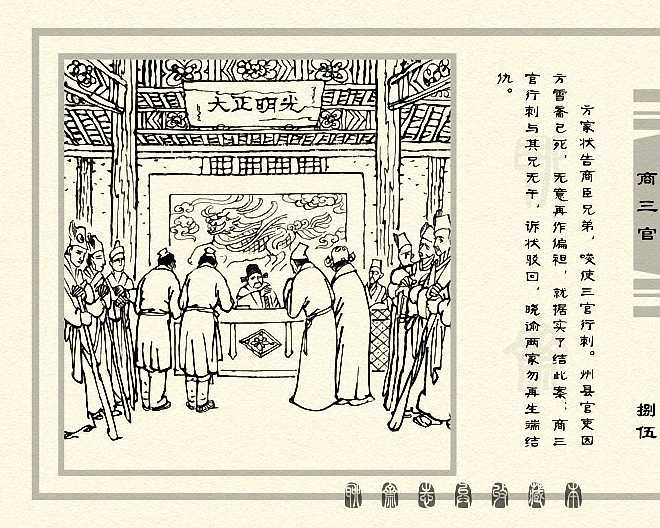 商三官
捌伍
方家状告商臣兄弟，唆使三官行刺。州县官吏因
方雪斋已死，无意再作偏袒，就据实了结此案：商三
官行刺与其兄无干，诉状驳回，晓谕两家勿再生端结
仇。
光明正大
聊斋志异收藏本